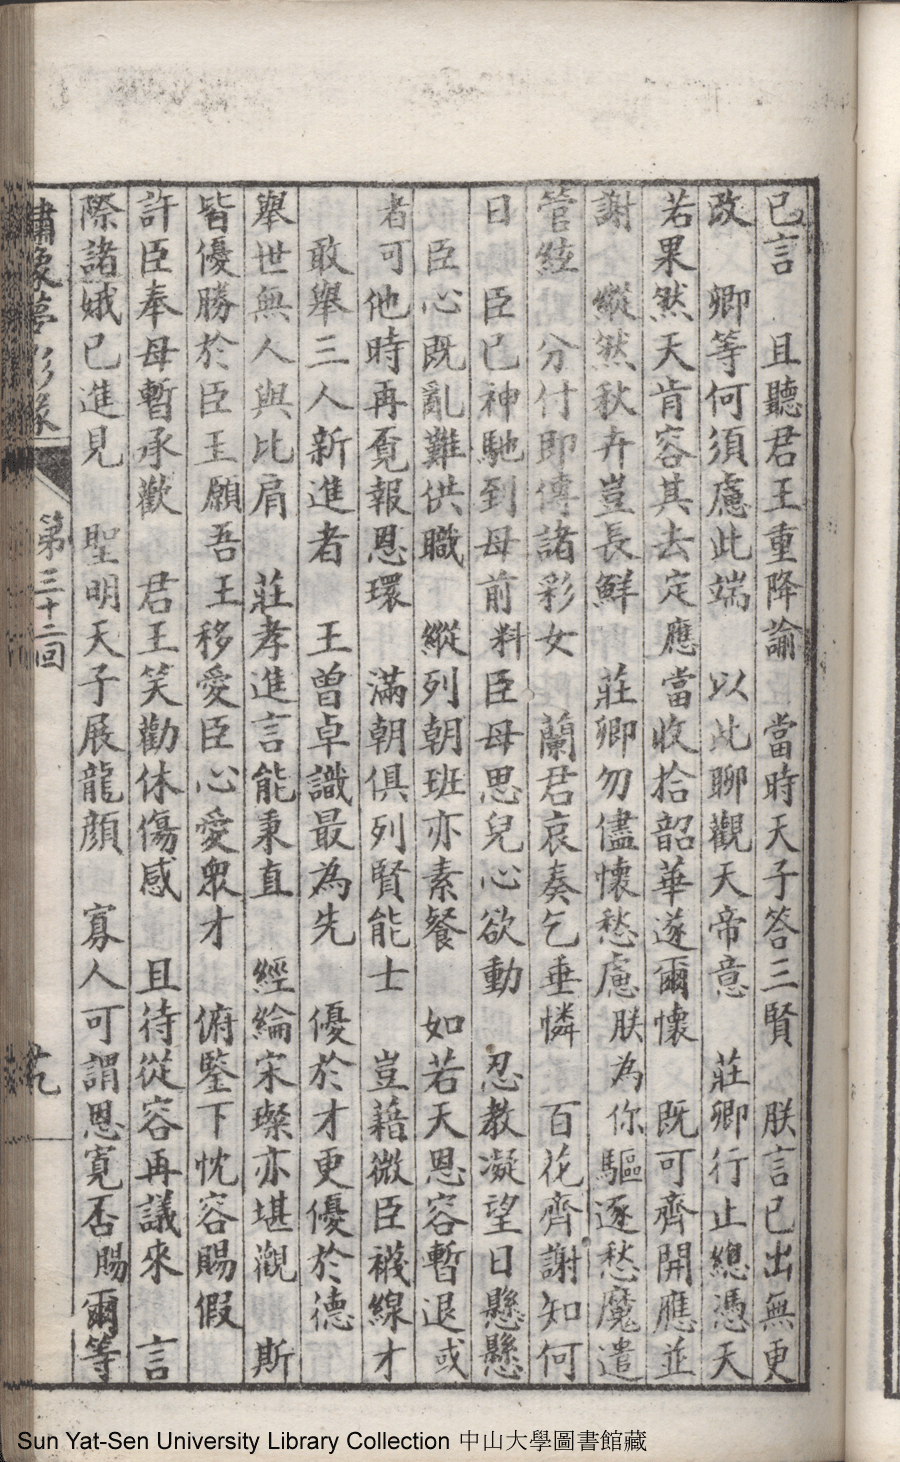 已言　且聽君王重降諭　當時天子答三賢　朕言已出無更
改　卿等何須慮此端　以此聊觀天帝意　莊卿行止總憑天
若果然天肯容其去定應當收拾韶華遂爾懷　既可齊開應並
謝　縱然秋卉豈長鮮　莊卿勿儘懷愁慮　朕為你驅逐愁魔遣
管絃　分付即傳諸彩女　蘭君哀奏乞垂憐　百花齊謝知何
日　臣已神馳到母前　料臣母思兒心欲動　忍教凝望日懸懸
臣心既亂難供職　縱列朝班亦素餐　如若天恩容暫退　或
者可他時再覓報恩環　滿朝俱列賢能士　豈藉微臣襪線才
敢舉三人新進者　王曾卓識最為先　優於才更優於德
舉世無人與比肩　莊孝進言能秉直　經綸宋璨亦堪觀　斯
皆優勝於臣王願吾王移愛臣心愛眾才　俯鑒下忱容賜假
許臣奉母暫承歡　君王笑勸休傷感　且待從容再議來　言
際諸娥已進見　聖明天子展龍顏　寡人可謂恩寬否　賜爾等
繡像夢影緣
第三十二回
Sun Yat-Sen University Library Collection 中山大學圖書館藏